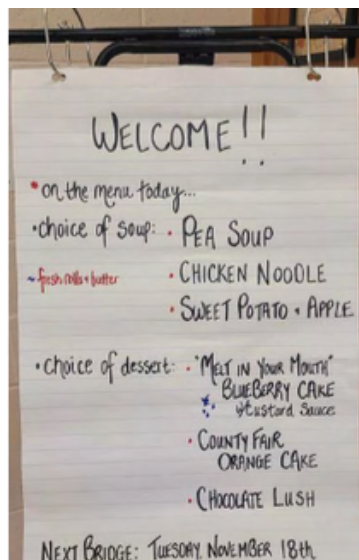 WELCOME!!
• on the menu today...
• choice of soup: • PEA SOUP
~ fresh rolls + butter • CHICKEN NOODLE
• SWEET POTATO + APPLE
• choice of dessert: • "MELT IN YOUR MOUTH"
BLUEBERRY CAKE
w/ custard sauce
• COUNTY FAIR
ORANGE CAKE
• CHOCOLATE LUSH
NEXT BRIDGE: TUESDAY, NOVEMBER 18th